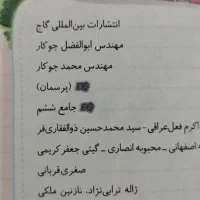 انتشارات بین‌المللی گاج
مهندس ابوالفضل جوکار
مهندس محمد جوکار
(پرسمان)
جامع ششم
اکرم فعل‌عراقی- سید محمدحسین ذوالفقاری‌فر
اصفهانی _ محبوبه انصاری _ گیتی جعفرکریمی
صغری قربانی
ژاله ترابی‌نژاد، نازنین ملکی